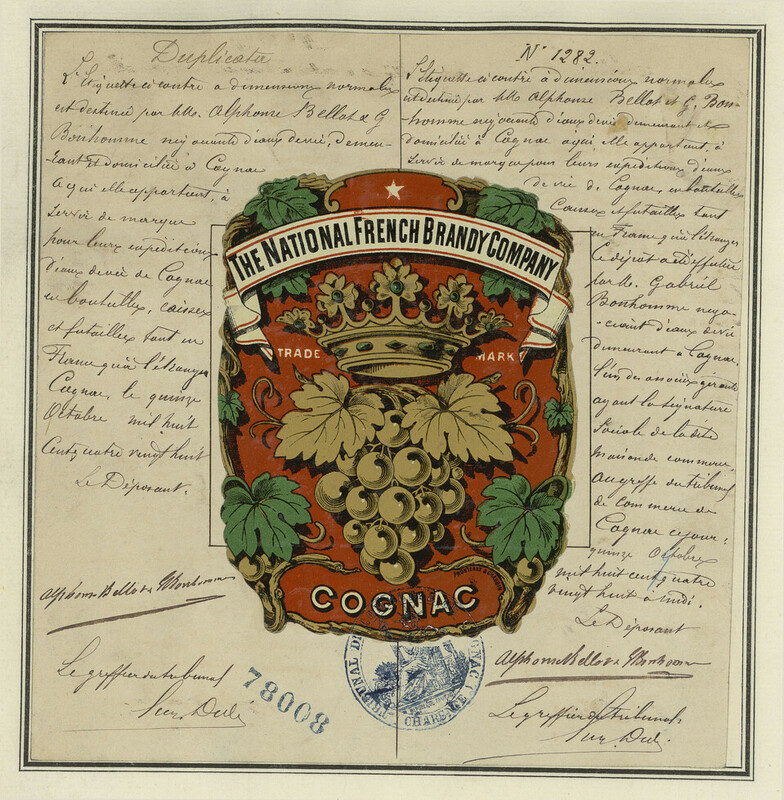 Duplicata
L'Etiquette ci contre à dimensions normales
est destinée par MM. Alphonse Bellot & G
Bonhomme négociants d'eaux de vie, demeu-
-rant et domiciliés à Cognac
à qui elle appartient, à
servir de marque
pour leurs expéditions
d'eaux de vie de Cognac
en bouteilles, caisses
et futailles tant en
France qu'à l'étranger
Cognac, le quinze
Octobre mil huit
Cent quatre vingt huit
Le Déposant.
Alphonse Bellot & G Bonhomme
Le greffier du tribunal
78008
N° 1282.
L'Etiquette ci contre à dimensions normales
est destinée par MM Alphonse Bellot et G. Bon-
-homme négociants d'eaux de vie demeurant et
domiciliés à Cognac à qui elle appartient, à
servir de marque pour leurs expéditions d'eaux
de vie de Cognac, en bouteilles
Caisses et futailles tant
en France qu'à l'étranger
Le dépôt a été effectué
par M. Gabriel
Bonhomme négo-
-ciant d'eaux de vie
demeurant à Cognac,
l'un des associés gérants
ayant la signature
sociale de la dite
maison de commerce,
au greffe du tribunal
de Commerce de
Cognac ce jour
quinze Octobre
mil huit cent quatre
vingt huit à midi.
Le Déposant
Alphonse Bellot & G Bonhomme
Le greffier du tribunal
THE NATIONAL FRENCH BRANDY COMPANY
TRADE MARK
COGNAC
TRIBUNAL DE
COGNAC
CHARENTE